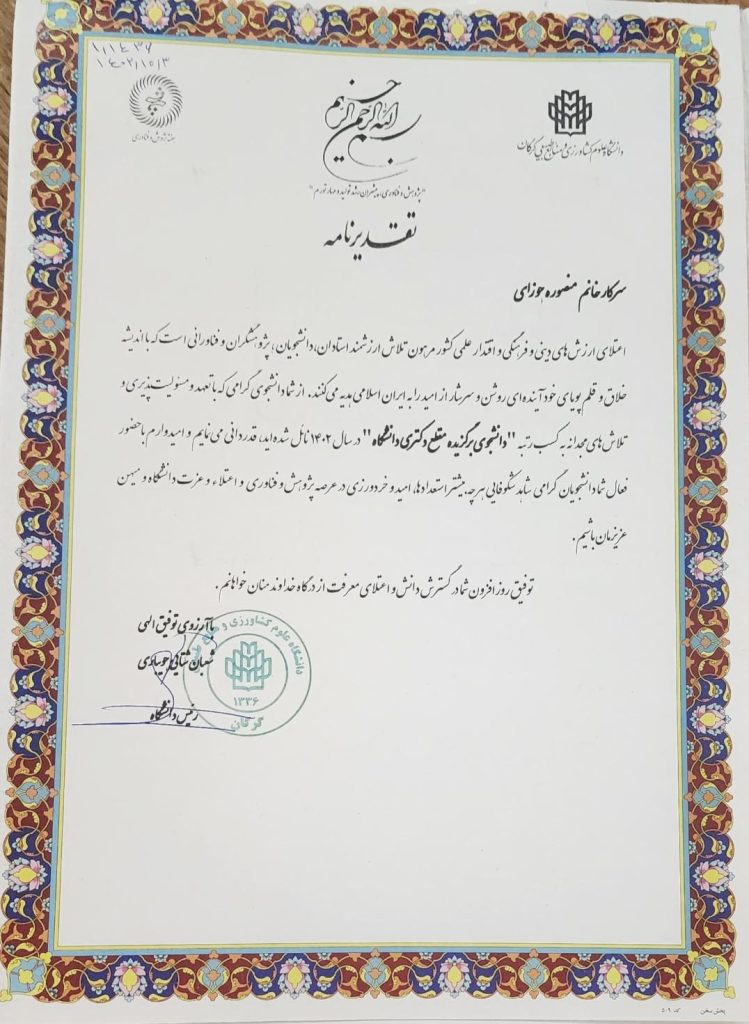 ۱,۱۴۳۶
۱۴۰۲/۱۰/۳
هفته پژوهش و فناوری
بسم الله الرحمن الرحیم
دانشگاه علوم کشاورزی و منابع طبیعی گرگان
"پژوهش و فناوری، پیشران رشد تولید و مهار تورم"
تقدیرنامه
سرکار خانم منصوره جوزای
اعتلای ارزش های دینی و فرهنگی و اقتدار علمی کشور مرهون تلاش ارزشمند استادان، دانشجویان، پژوهشگران و فناورانی است که با اندیشه
خلاق و قلم پویای خود آینده ای روشن و سرشار از امید را به ایران اسلامی هدیه می کنند. از شما دانشجوی گرامی که با تعهد و مسئولیت پذیری و
تلاش های مجدانه به کسب رتبه "دانشجوی برگزیده مقطع دکتری دانشگاه" در سال ۱۴۰۲ نائل شده اید، قدردانی می نمایم و امیدوارم با حضور
فعال شما دانشجویان گرامی شاهد شکوفایی هرچه بیشتر استعدادها، امید و خردورزی در عرصه پژوهش و فناوری و اعتلاء و عزت دانشگاه و میهن
عزیزمان باشیم.
توفیق روزافزون شما در گسترش دانش و اعتلای معرفت از درگاه خداوند منان خواهانم.
با آرزوی توفیق الهی
شعبان شتایی جویباری
رئیس دانشگاه
دانشگاه علوم کشاورزی و
۱۳۳۶
گرگان
پخش سخن کد ۵۰۹